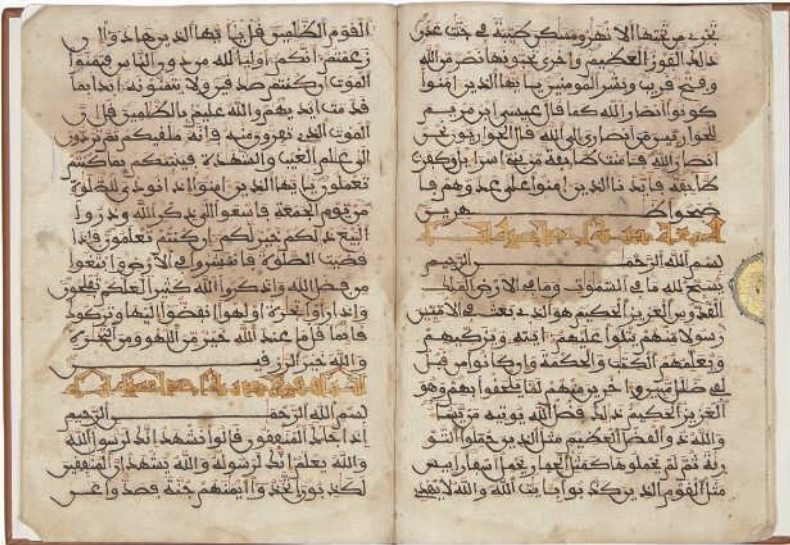 تجري من تحتها الانهر ومسكن طيبة في جنت عدن
ذلك الفوز العظيم واخرى تحبونها نصر من الله
وفتح قريب وبشر المومنين يايها الذين امنوا
كونوا انصارا لله كما قال عيسى ابن مريم
للحواريين من انصاري الى الله قال الحواريون نحن
انصار الله فامنت طايفة من بني اسراءيل وكفرت
طايفة فايدنا الذين امنوا على عدوهم فا
صبحوا ظهرين
بسم الله الرحمن الرحيم
يسبح لله ما في السموت وما في الارض الملك
القدوس العزيز الحكيم هو الذي بعث في الاميين
رسولا منهم يتلوا عليهم ءايته ويزكيهم
ويعلمهم الكتب والحكمة وان كانوا من قبل
لفي ضلل مبين وءاخرين منهم لما يلحقوا بهم وهو
العزيز الحكيم ذلك فضل الله يوتيه من يشا
والله ذو الفضل العظيم مثل الذين حملوا التو
رية ثم لم يحملوها كمثل الحمار يحمل اسفارا بيس
مثل القوم الذين كذبوا بايت الله والله لا يهدي
القوم الظلمين قل يايها الذين هادوا ان
زعمتم انكم اوليا لله من دون الناس فتمنوا
الموت ان كنتم صدقين ولا يتمنونه ابدا بما
قدمت ايديهم والله عليم بالظلمين قل ان
الموت الذي تفرون منه فانه ملقيكم ثم تردون
الى علم الغيب والشهدة فينبئكم بما كنتم
تعملون يايها الذين امنوا اذا نودي للصلوة
من يوم الجمعة فاسعوا الى ذكر الله وذروا
البيع ذلكم خير لكم ان كنتم تعلمون فاذا
قضيت الصلوة فانتشروا في الارض وابتغوا
من فضل الله واذكروا الله كثيرا لعلكم تفلحون
واذا راوا تجرة او لهوا انفضوا اليها وتركوك
قايما قل ما عند الله خير من اللهو ومن التجرة
والله خير الرزقين
بسم الله الرحمن الرحيم
اذا جاك المنفقون قالوا نشهد انك لرسول الله
والله يعلم انك لرسوله والله يشهد ان المنفقين
لكذبون اتخذوا ايمنهم جنة فصدوا عن